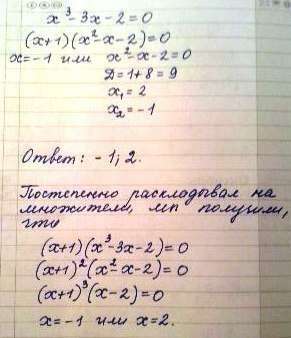 x³ - 3x - 2 = 0
(x+1)(x² - x - 2) = 0
x = -1 или x² - x - 2 = 0
Д = 1 + 8 = 9
x₁ = 2
x₂ = -1
Ответ: -1; 2.
Постепенно раскладывал на
множители, мп получили,
что
(x+1)(x³ - 3x - 2) = 0
(x+1)²(x² - x - 2) = 0
(x+1)³(x - 2) = 0
x = -1 или x = 2.